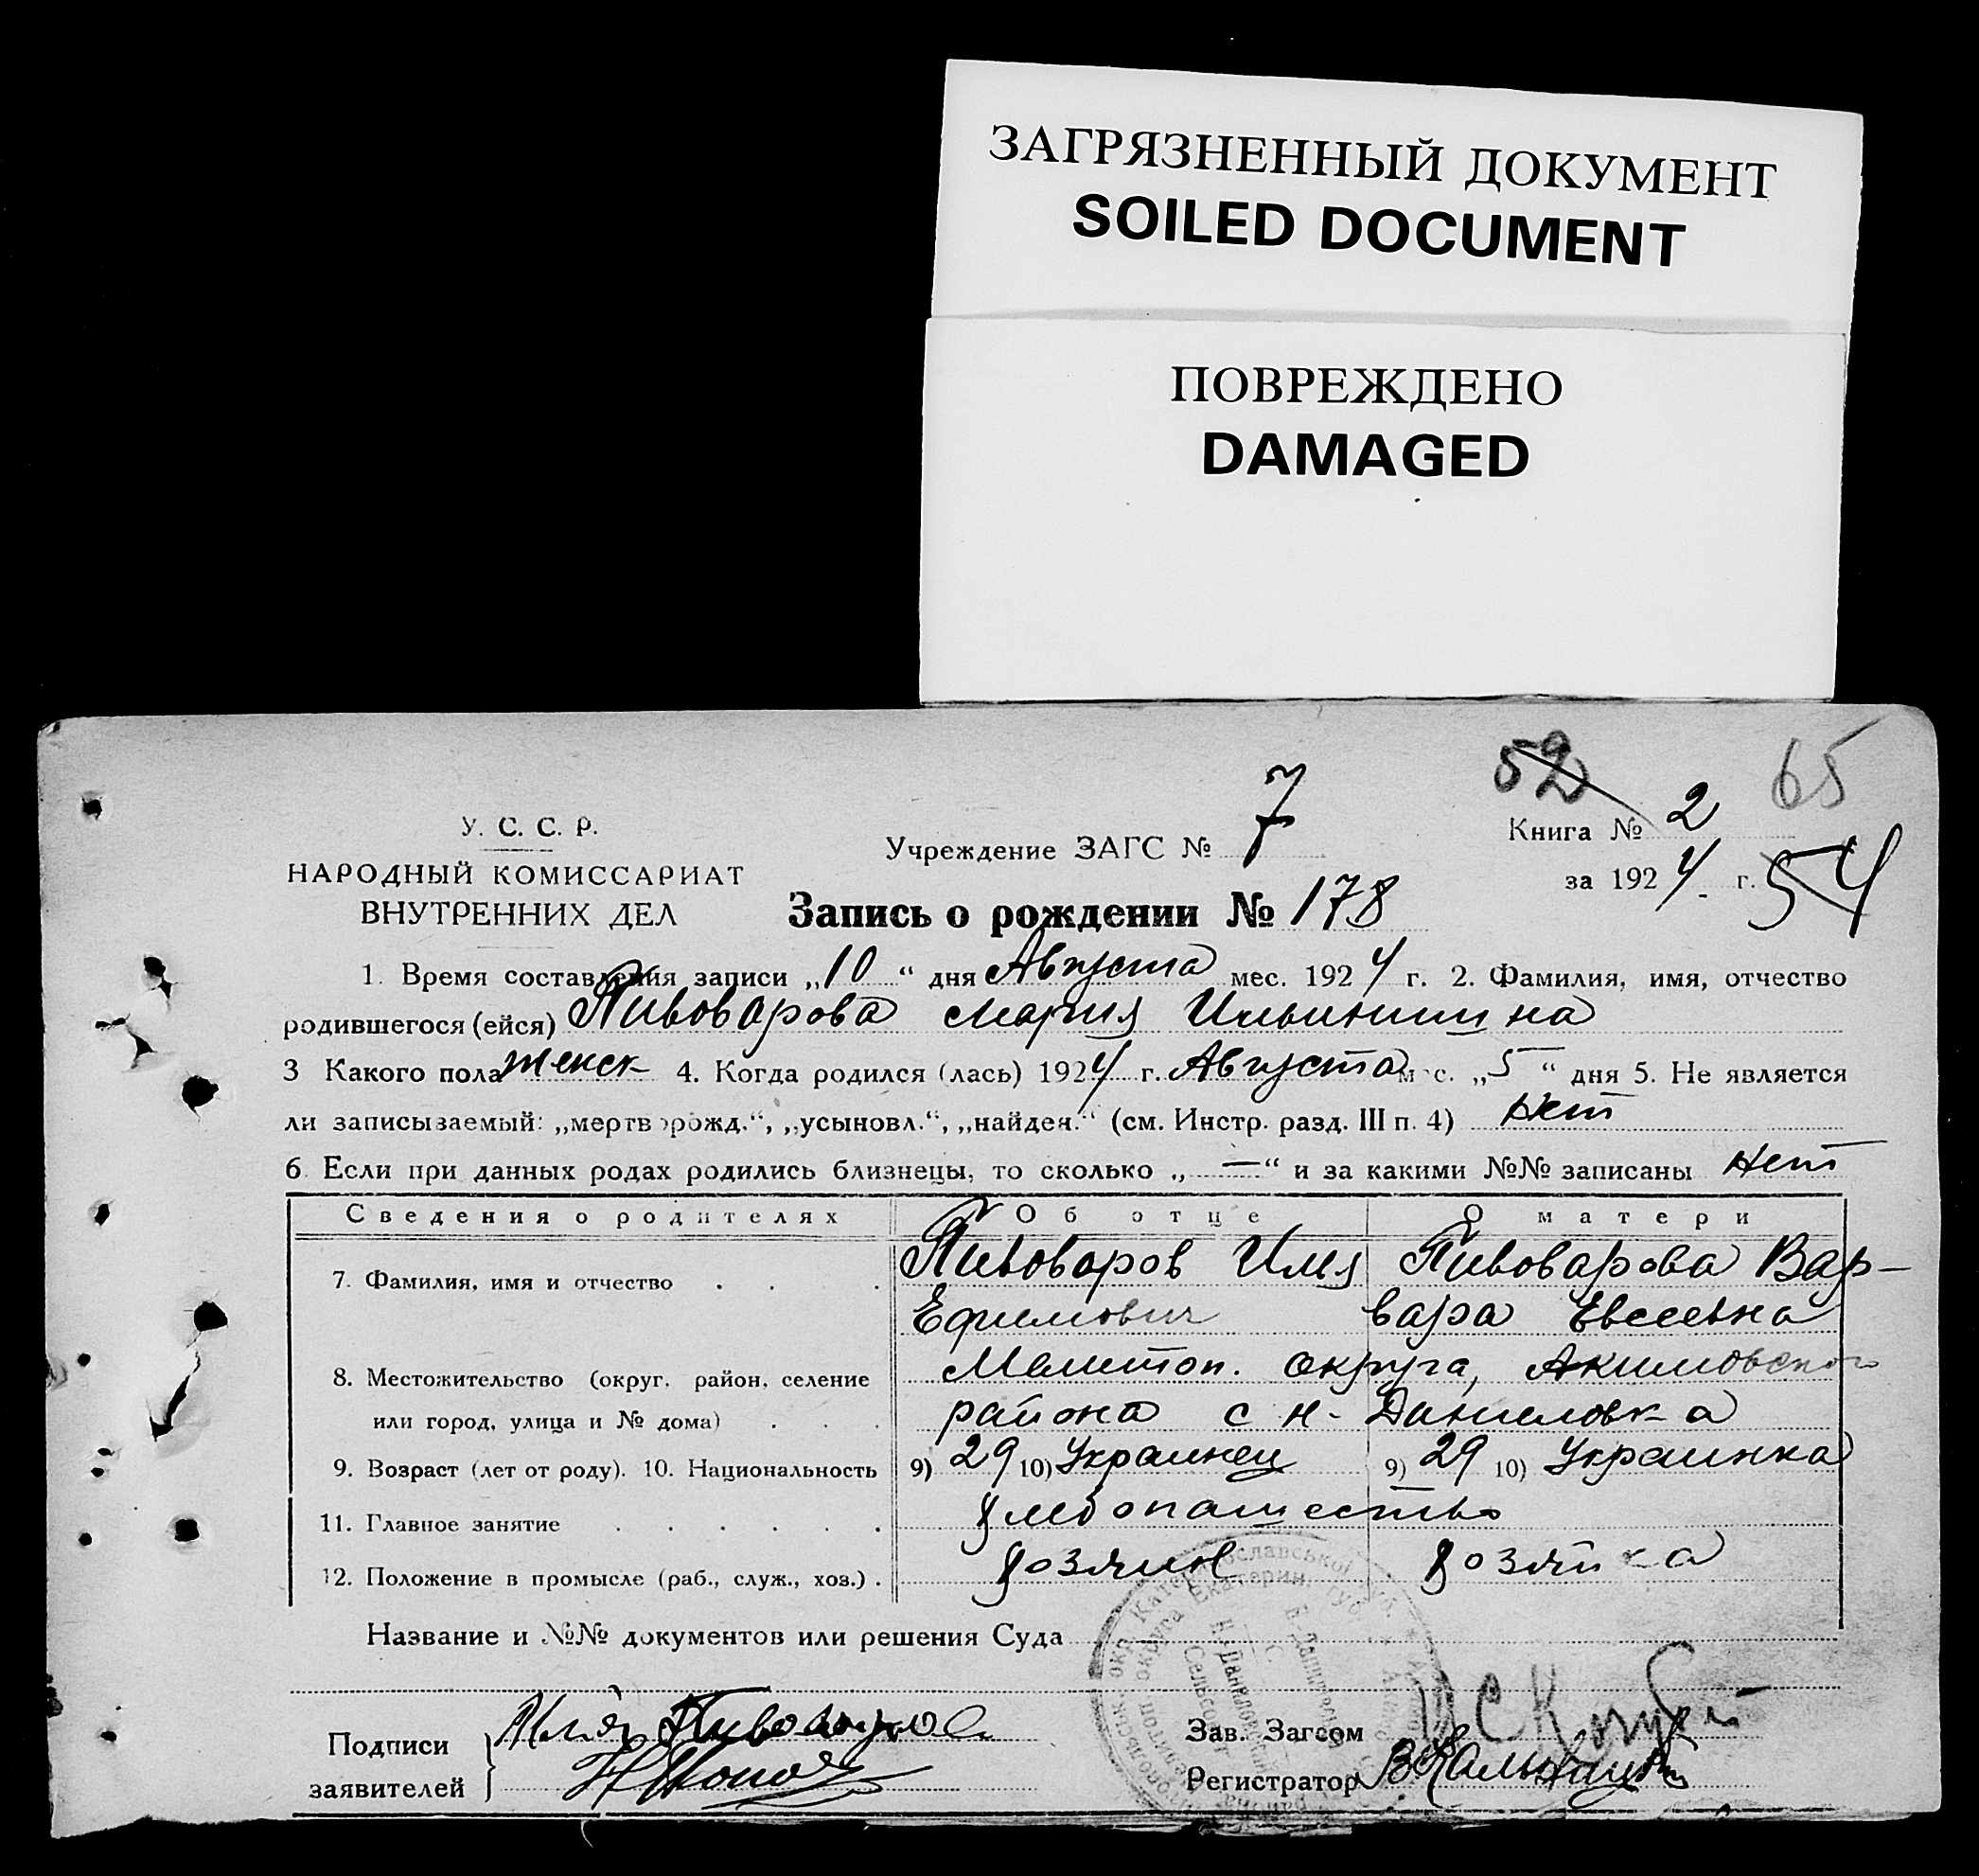 ЗАГРЯЗНЕННЫЙ ДОКУМЕНТ
SOILED DOCUMENT
ПОВРЕЖДЕНО
DAMAGED
52 65
У. С. С. Р.
НАРОДНЫЙ КОМИССАРИАТ
ВНУТРЕННИХ ДЕЛ
Учреждение ЗАГС № 7
Книга № 2
за 1924 г. 54
Запись о рождении № 178
1. Время составления записи „10“ дня Августа мес. 1924 г. 2. Фамилия, имя, отчество
родившегося (ейся) Пивоварова Мария Ильинишна
3 Какого пола женск 4. Когда родился (лась) 1924 г. Августа мес. „5“ дня 5. Не является
ли записываемый: „мертворожд.“, „усыновл.“, „найден.“ (см. Инстр. разд. III п. 4) Нет
6. Если при данных родах родились близнецы, то сколько „—“ и за какими №№ записаны Нет
Сведения о родителях Об отце О матери
7. Фамилия, имя и отчество . . . Пивоваров Илья Пивоварова Вар-
Ефимович вара Евсеевна
8. Местожительство (округ, район, селение Мелитоп. округа, Акимовского
или город, улица и № дома) . . . района с Н-Даниловка
9. Возраст (лет от роду). 10. Национальность 9) 29 10) Украинец 9) 29 10) Украинка
11. Главное занятие . . . . . . хлебопашество
12. Положение в промысле (раб., служ., хоз.) . хозяин хозяйка
Название и №№ документов или решения Суда
Подписи заявителей Илья Пивоваров
Зав. Загсом
Регистратор